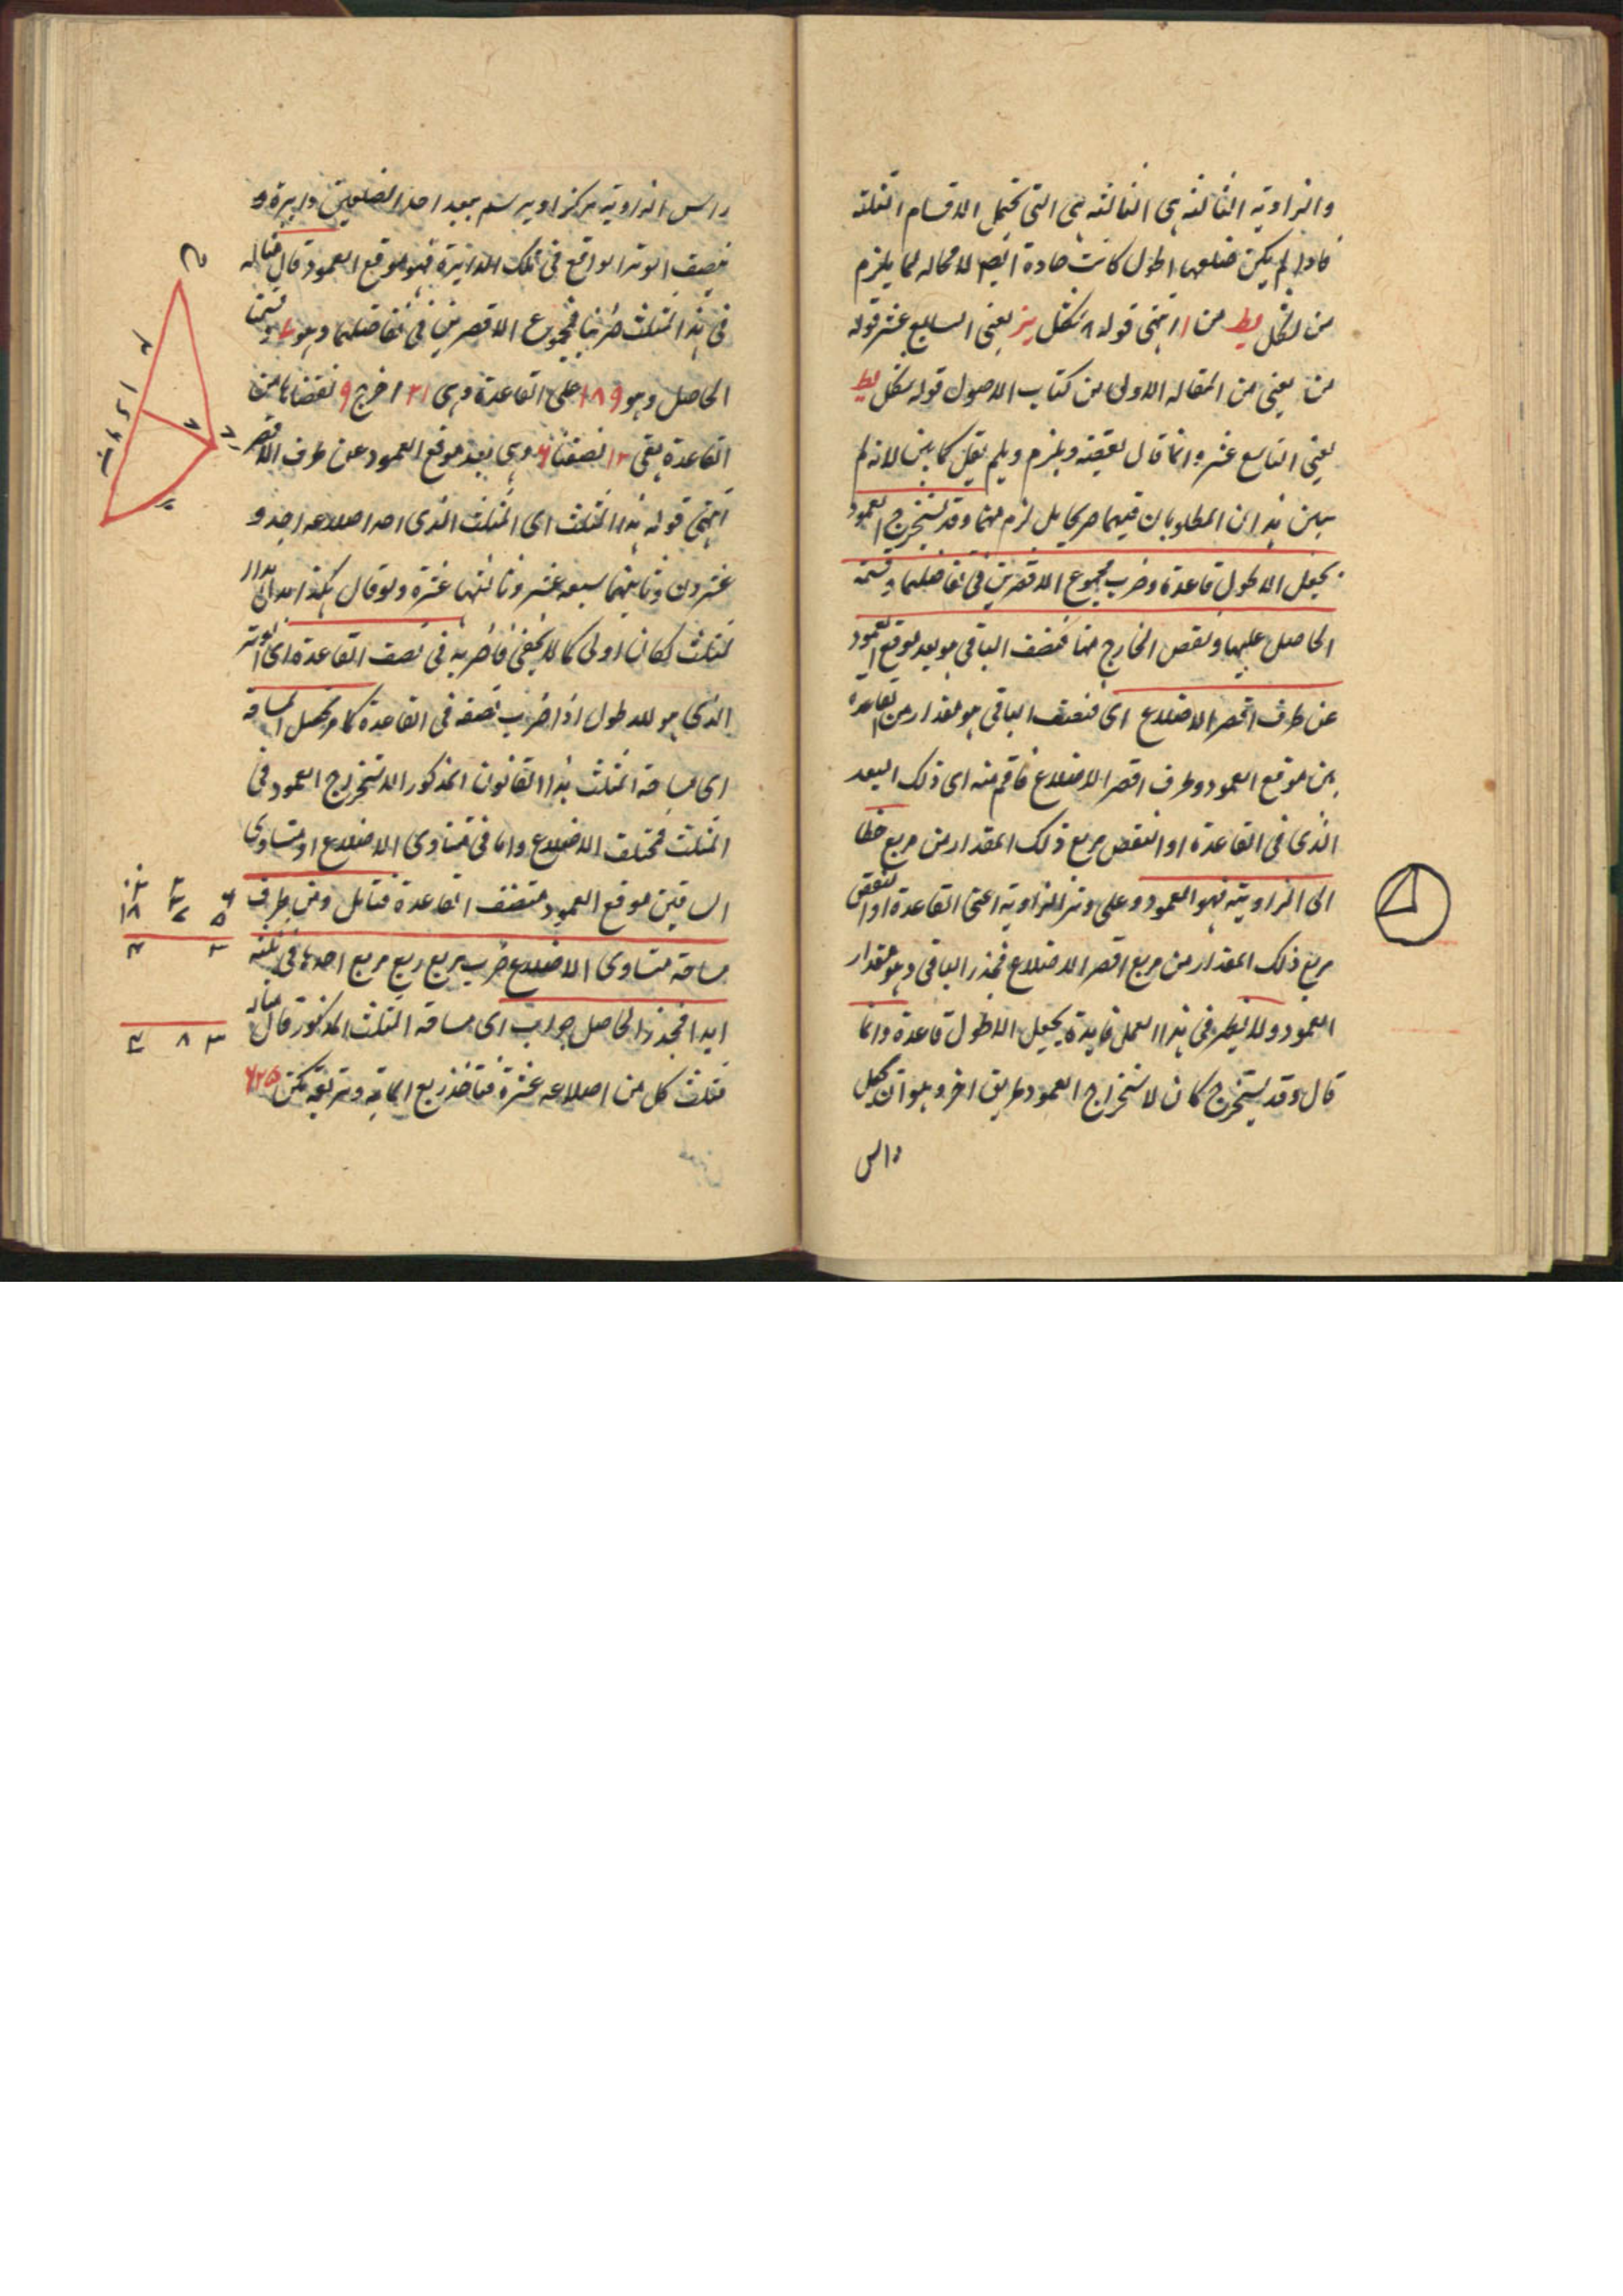 والزاوية الثالثة هى الثالثة هى التى تحتمل الاقسام الثلثة
فاذا لم يكن ضلعها اطول كانت حادة ايضا لا محاله لما يلزم
من الشكل يط من ا انتهى قوله شكل يز يعنى السابع عشر قوله
من يعنى من المقاله الاولى من كتاب الاصول قوله شكل يط
يعنى التاسع عشر وانما قال بعضه ويلزم ولم يقل كما بين لانه لم
يبين هذان المطلوبان فيهما صريحا بل لزم منهما وقد يستخرج العمود
بجعل الاطول قاعدة وضرب مجموع الاقصرين فى تفاضلهما وقسمة
الحاصل عليها ونقص الخارج منها فنصف الباقى هو بعد موقع العمود
عن طرف اقصر الاضلاع اى فنصف الباقى هو مقدار من القاعدة
بين موقع العمود وطرف اقصر الاضلاع فاقم منه اى ذلك البعد
الذى فى القاعدة او انقص مربع ذلك المقدار من مربع خطا
الى الزاوية فهو العمود وعلى وتر الزاوية اعنى القاعدة او انقص
مربع ذلك المقدار من مربع اقصر الاضلاع فجذر الباقى وهو مقدار
العمود ولا يظهر فى هذا العمل فايدة بجعل الاطول قاعدة وانما
قال وقد يستخرج كان لاستخراج العمود طريق اخر وهو ان يجعل
راس
راس الزاوية مركزا ويرسم ببعد احد الضلعين دايرة و
ينصف الوتر الواقع فى تلك الدايرة فهو موقع العمود قال مثاله
فى هذا المثلث ضربنا مجموع الاقصرين فى تفاضلهما وهو ٧ وقسمنا
الحاصل وهو ١٨٩ على القاعدة وهى ٢١ اخرج ٩ نقصناها من
القاعدة بقى ١٢ نصفنا ٦ وهى بعد موقع العمود عن طرف الاقصر
انتهى قوله هذا المثلث اى المثلث الذى احد اضلاعه احد و
عشرون وثانيهما سبعه عشر وثالثها عشرة ولو قال هكذا
مثلث لكان اولى كما لا يخفى فاضربه فى نصف القاعدة اى الوتر
الذى هو الاطول اذا ضرب نصفه فى القاعدة كما مر يحصل المساحة
اى مساحة المثلث هذا القانون المذكور لاستخراج العمود فى
المثلث مختلف الاضلاع واما فى متساوى الاضلاع او متساوى
الساقين موقع العمود منتصف القاعدة فتامل ومن طرف
مساحة متساوى الاضلاع ضرب مربع ربع مربع احدها فى ثلثة
ابدا فجذر الحاصل جواب اى مساحة المثلث المذكور قال مثاله
مثلث كل من اضلاعه عشرة فتاخذ ربع الماية وتربعه يكن ٦٢٥